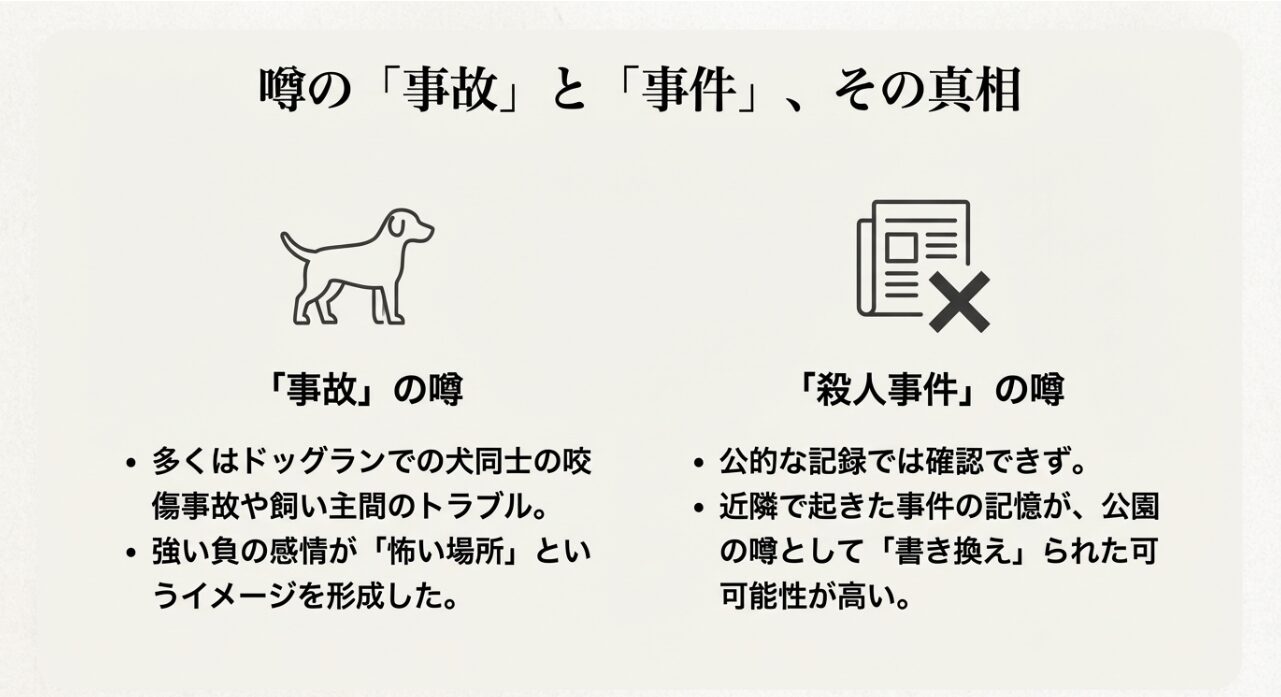 噂の「事故」と「事件」、その真相
「事故」の噂
• 多くはドッグランでの犬同士の咬
傷事故や飼い主間のトラブル。
• 強い負の感情が「怖い場所」とい
うイメージを形成した。
「殺人事件」の噂
• 公的な記録では確認できず。
• 近隣で起きた事件の記憶が、公園
の噂として「書き換え」られた可
可能性が高い。